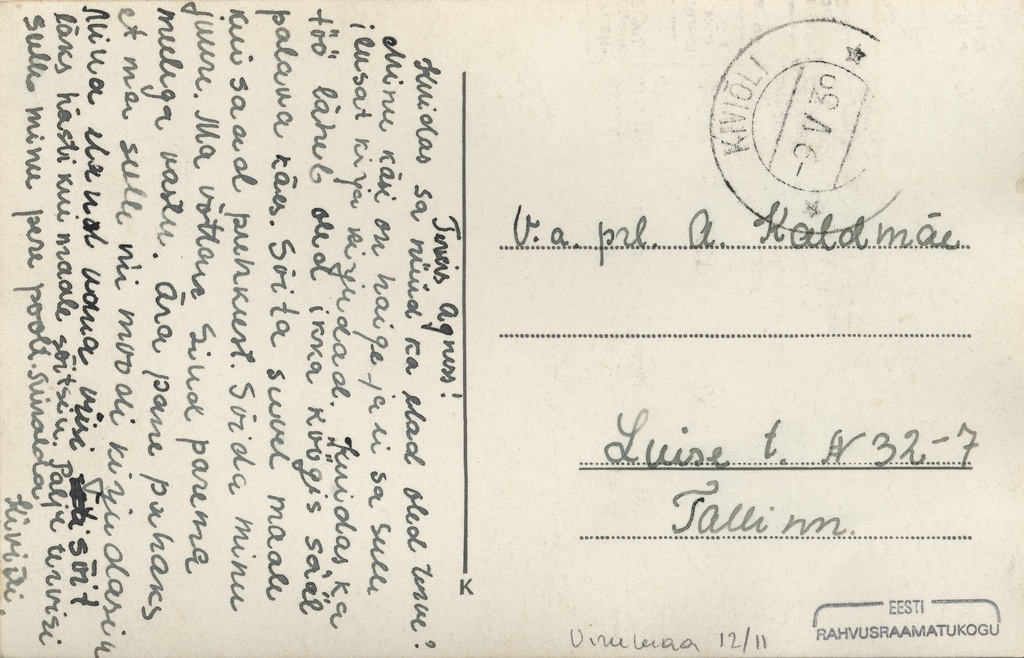 Tervis Agnes!
Kuidas sa nüüd ka elad oled terve?
Minu käsi on haige ja ei sa sulle
ilusat kirja kirjudad. Kuidas ka
töö läheb oled ikka köögis sääl
palava käes. Sõita suvel maale
kui saad puhkust. Sõida minu
juure. Ma võttan Sind parema
meelega vastu. Ära pane pahaks
et ma sulle nii moodi kirjudasin
Mina elan vana viisi sõit
läks hästi kui maale sõitsin. Palju tervisi
sulle minu pere poolt.
Kiviõli.
KIVIÕLI
-9 V 39
V. a. prl. A. Kaldmäe
Luise t. N 32-7
Tallinn.
K
Virumaa 12/11
EESTI
RAHVUSRAAMATUKOGU